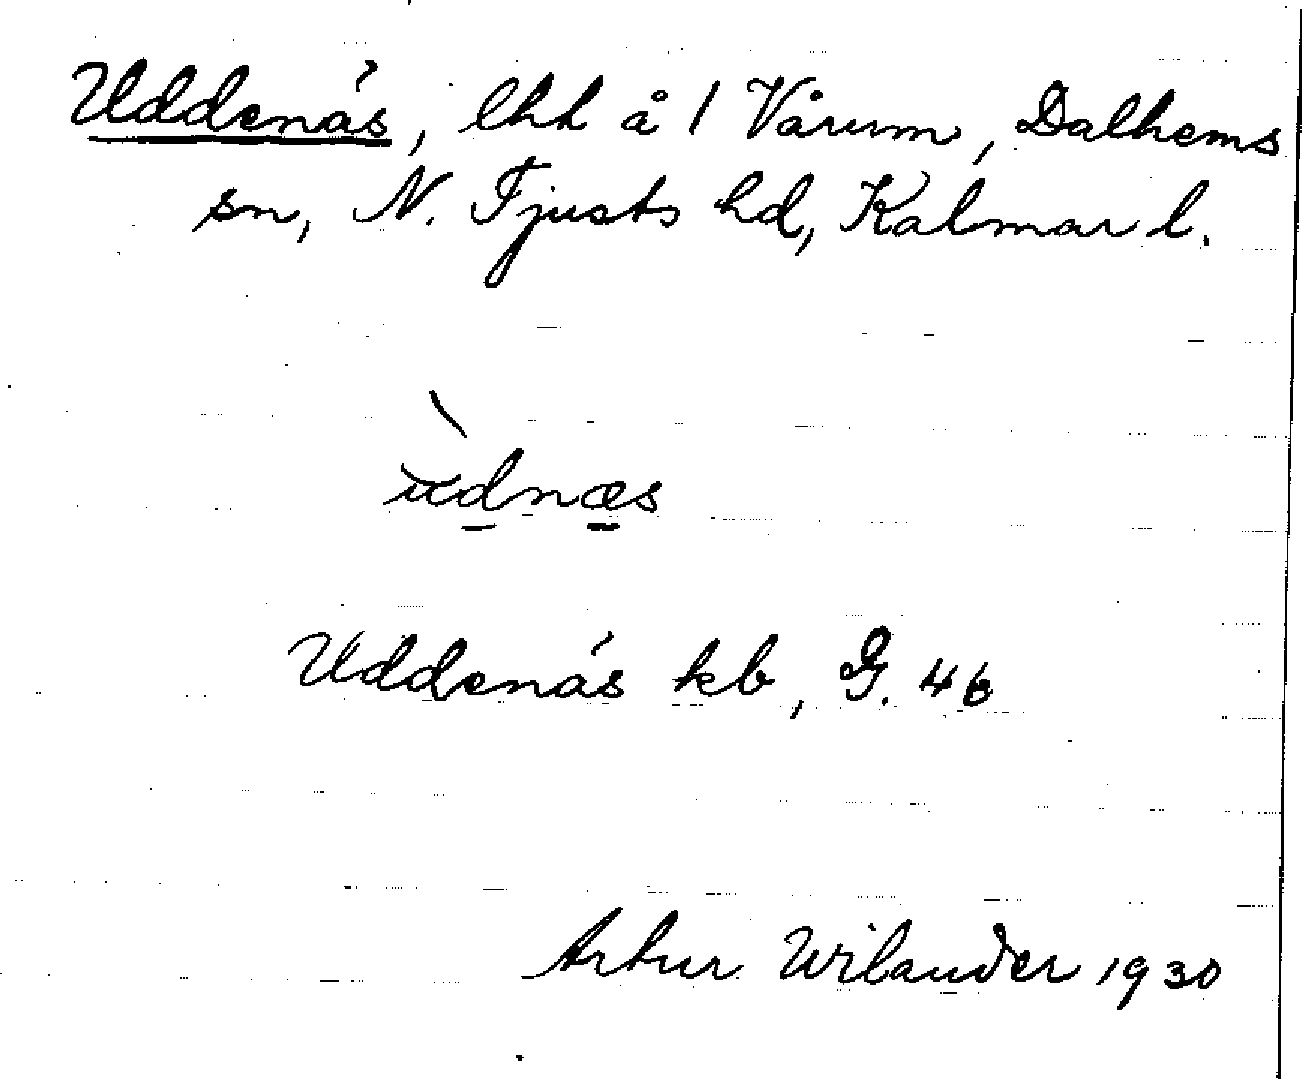 Uddenás, lhh å 1 Vårum, Dalhems
sn, N. Tjusts hd, Kalmar l.
ùdnæs
Uddenás kb, G. 46
Artur Wilander 1930